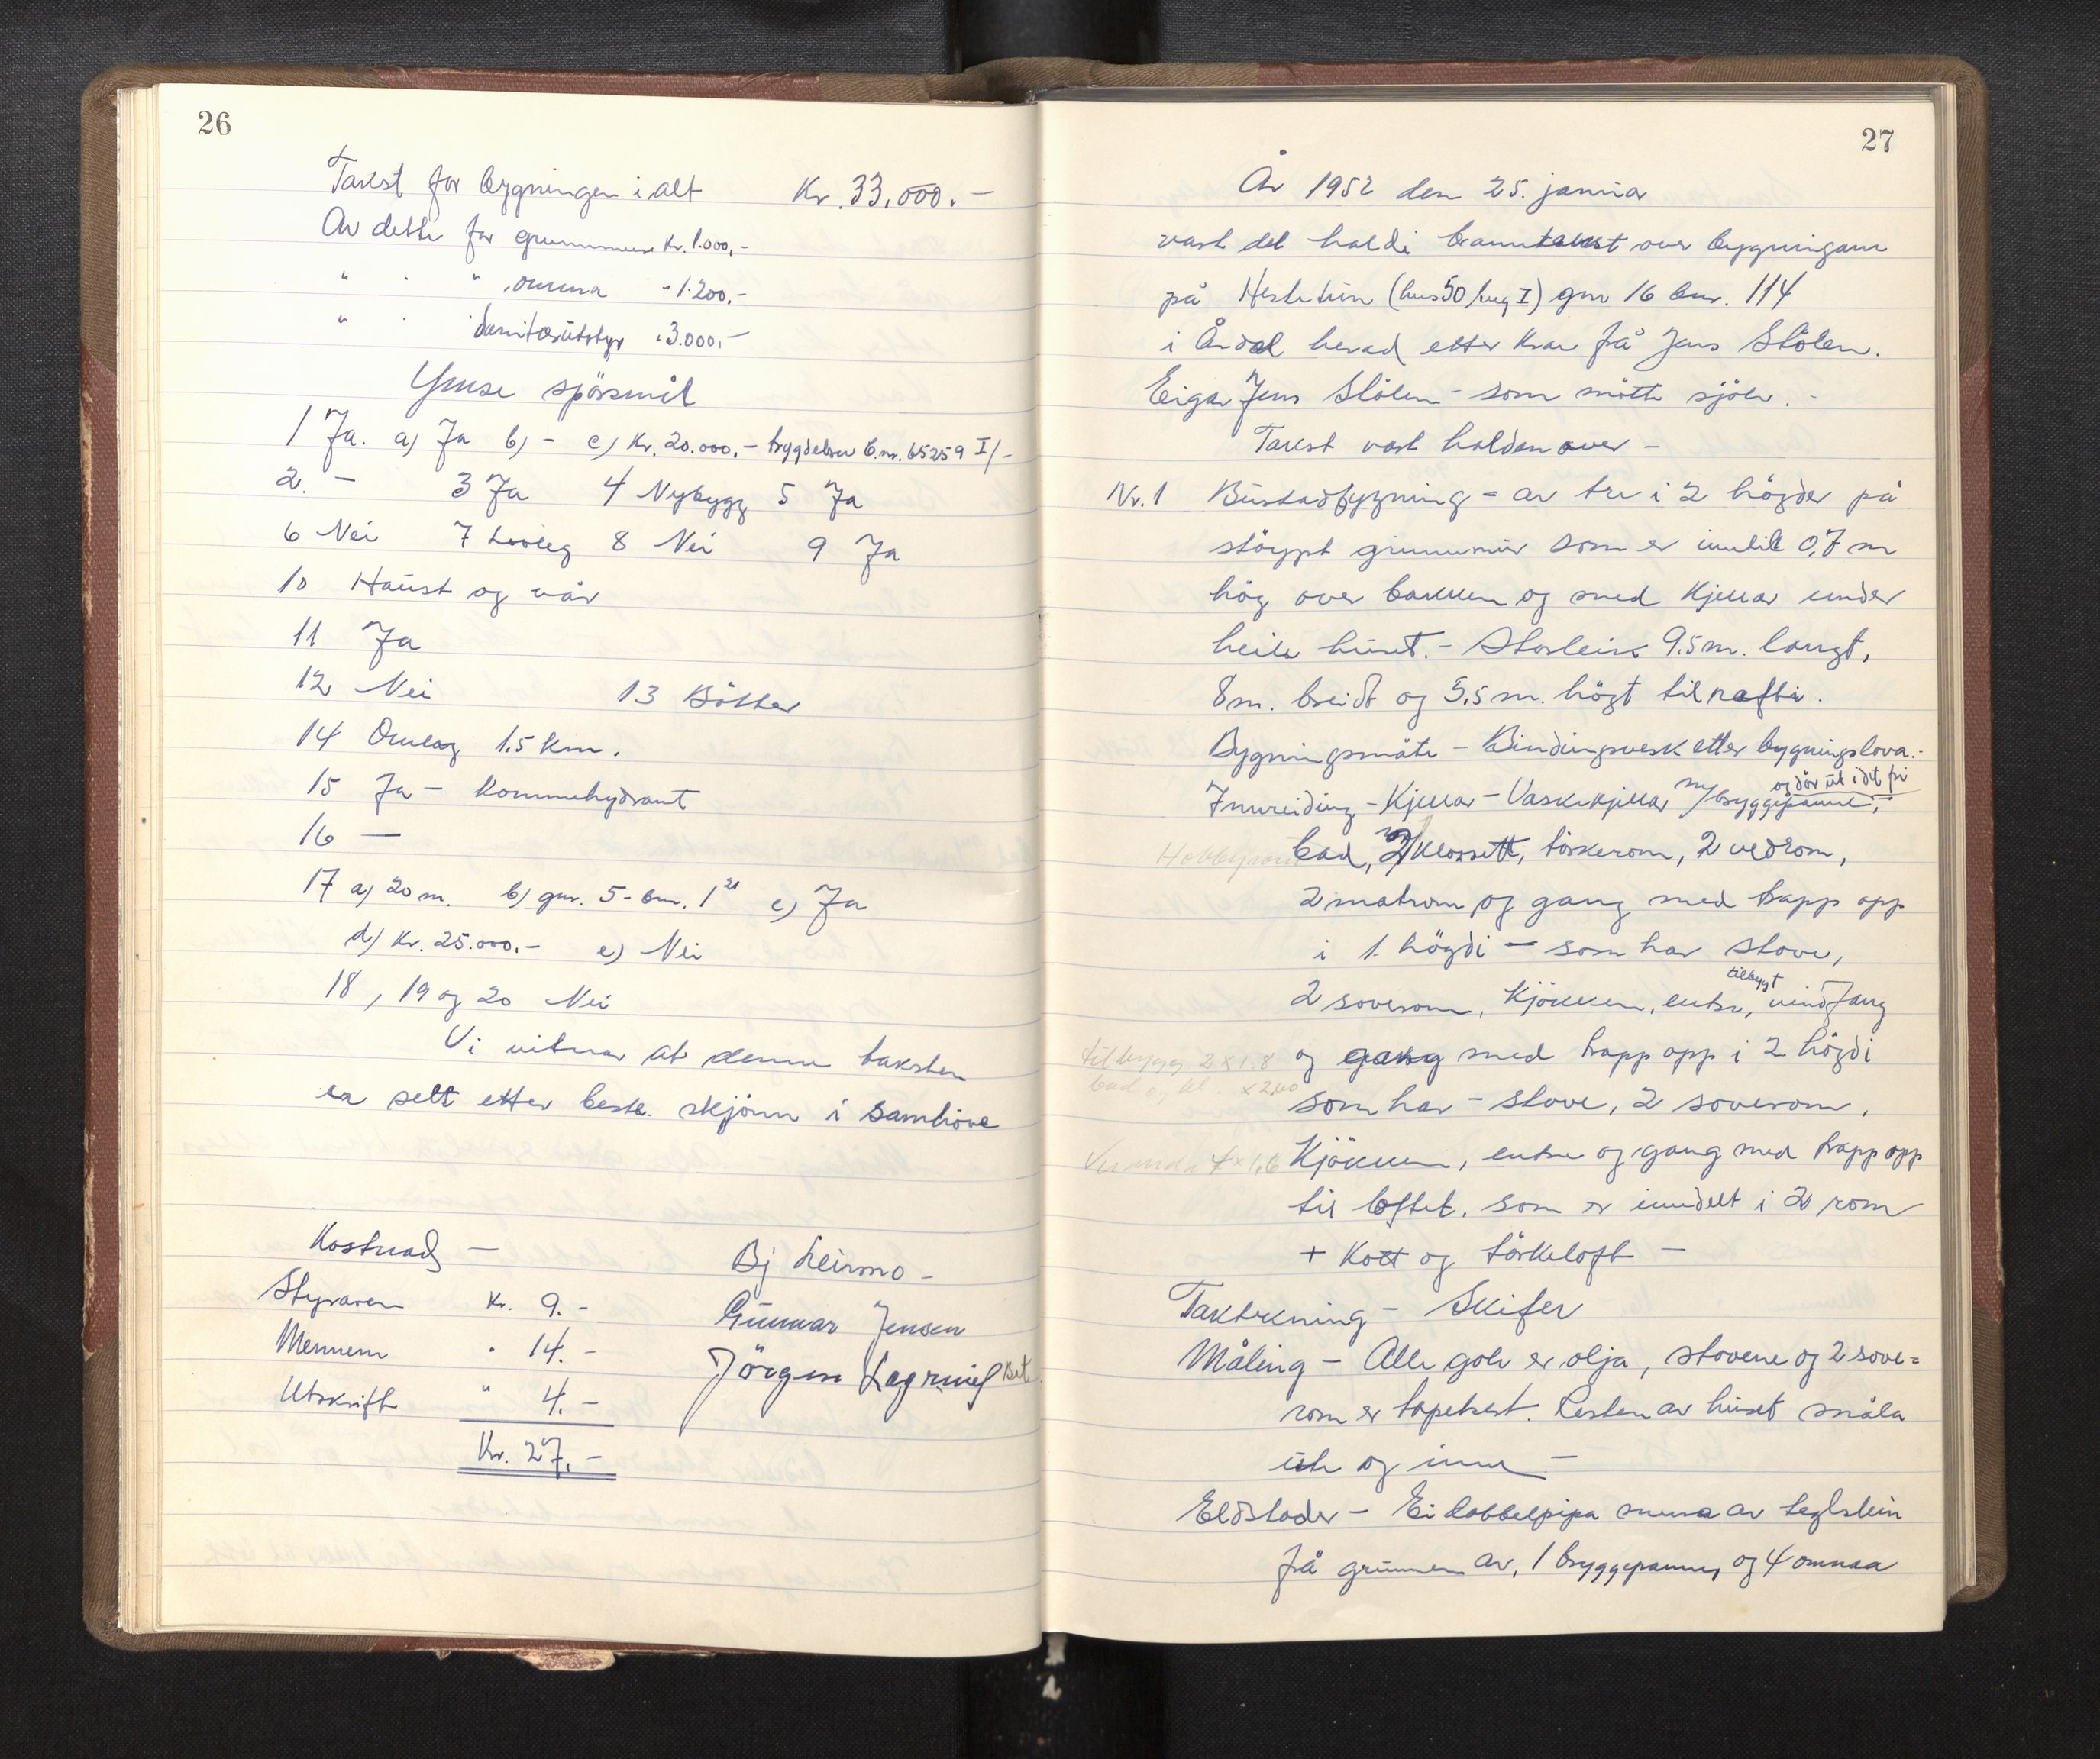 26
Takst for bygningen i alt Kr. 33.000.-
Av dette for grunnmur Kr. 1.000,-
" . " omna " 1.200,-
" . sanitærutstyr " 3.000,-
Ymse spörsmål
1 Ja. a) Ja b) - c) Kr. 20.000.- bygdebrev b.nr. 65259 I/-
2. - 3 Ja 4 Nybygg 5 Ja
6 Nei 7 Lovleg 8 Nei 9 Ja
10 Haust og vår
11 Ja
12 Nei 13 Bötter
14 Omlag 1.5 km.
15 Ja - Kommehydrant
16 -
17 a) 20 m. b) gnr. 5 - bnr. 1 21 c) Ja
d) Kr. 25.000.- e) Nei
18, 19 og 20 Nei
Vi vitnar at denne taksten
er sett etter beste skjönn i samhöve
Kostnad -
Styraren Kr. 9.-
Mennene " 14.-
Utskrift " 4.-
Kr. 27.-
Bj Leirmo -
Gunnar Jensen
Jörgen
27
År 1952 den 25. januar
vart det haldi branntakst over bygningane
på Hestetun (hus 50 byg I) gnr 16 bnr. 114
i Årdal herad etter krav frå Jens Stölen.
Eigar Jens Stölen - som mötte sjölv. -
Takst vart halden over -
Nr. 1 Bustadbygning - av tre i 2 högder på
stöypt grunnmur som er inntil 0,7 m
hög over bakken og med kjellar under
heile huset. - Storleik 9.5 m. langt,
8 m. breidt og 5,5 m. högt til rafti.
Bygningsmåte - Bindingsverk etter bygningslova.-
og dör ut i det fri
Innreiding - Kjellar - Vaskekjellar m/bryggepanne,-
Hobbyrom bad, 2 klossett, törkerom, 2 vedrom,
2 matrom og gang med trapp opp
i 1. högdi - som har stove,
tilbygt
2 soverom, kjökken, entre, vindfang
tilbygg 2 x 1.8 og gang med trapp opp i 2 högdi
bad og kl. x 2,40
som har - stove, 2 soverom,
Veranda 4 x 1,6 Kjökken, entre og gang med trapp opp
til loftet, som er inndelt i 2 rom
+ Kott og törkeloft -
Taktekning - Skifer
Måling - Alle golv er olja, stovene og 2 sove=
rom er tapetsert. Resten av huset måla
ute og inne -
Eldstader - Ei dobbelpipa mura av teglstein
frå grunnen av, 1 bryggepanne, og 4 omnaa